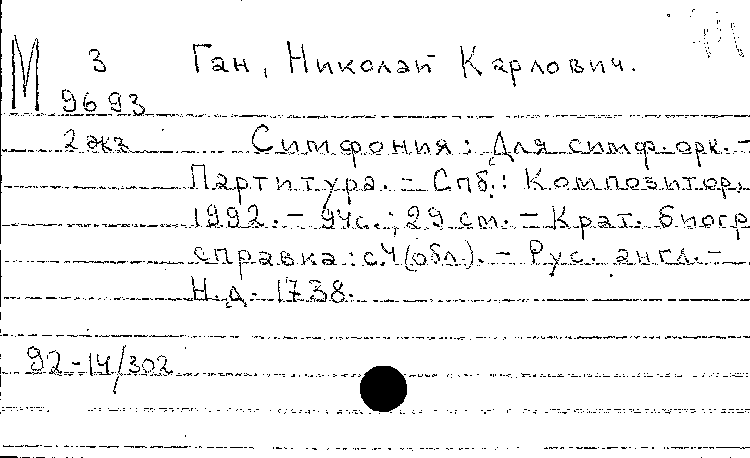 М 3 Ган, Николай Карлович.
9693
2 экз Симфония: Для симф. орк. -
Партитура. - Спб.: Композитор,
1992. - 94с.; 29 см. - Крат. биогр
справка: с.4 (обл.). - Рус. англ. -
Н.д. 1738.
92-14/302